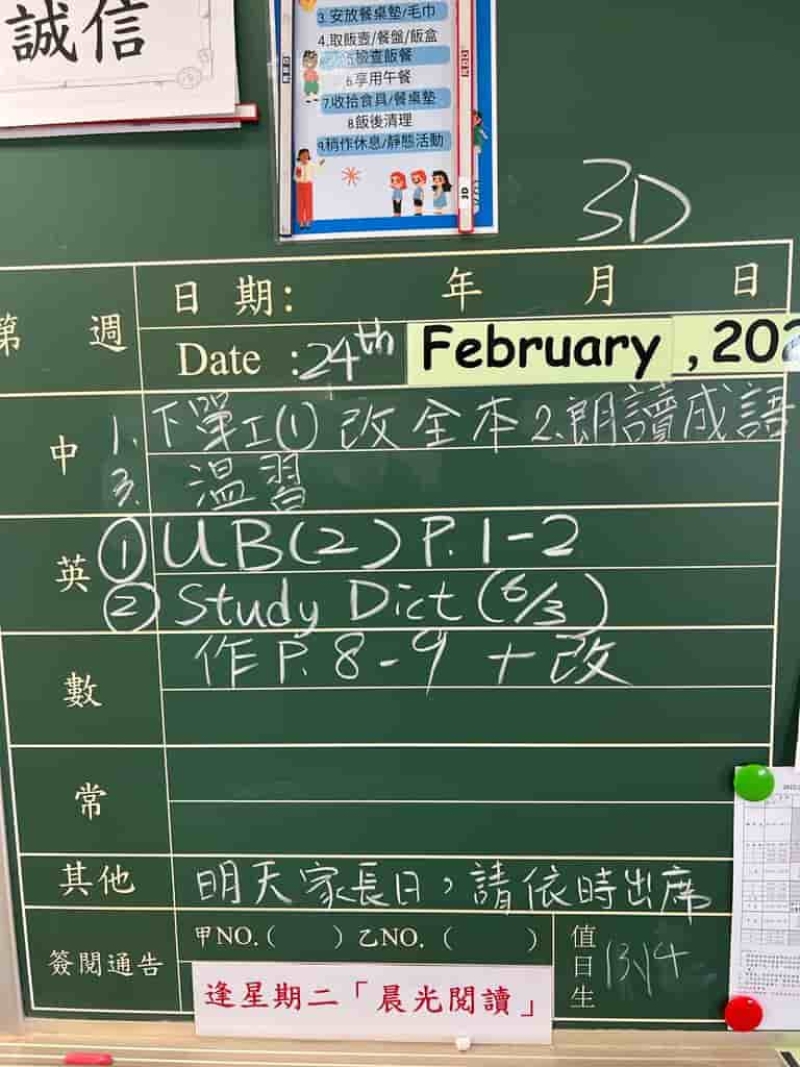 誠信
3.安放餐桌墊/毛巾
4.取飯壺/餐盤/飯盒
5.檢查飯餐
6.享用午餐
7.收拾食具/餐桌墊
8.飯後清理
9.稍作休息/靜態活動
3D
3D
第 週
日 期: 年 月 日
Date :24th February , 202
中
1. 下單工(1) 改全本 2.朗讀成語
3. 溫習
英
① UB(2) P. 1-2
② Study Dict (6/3)
數
作 P. 8-9 + 改
常
其他
明天家長日，請依時出席
簽閱通告
甲NO.( ) 乙NO. ( )
值日生
13,14
逢星期二「晨光閱讀」